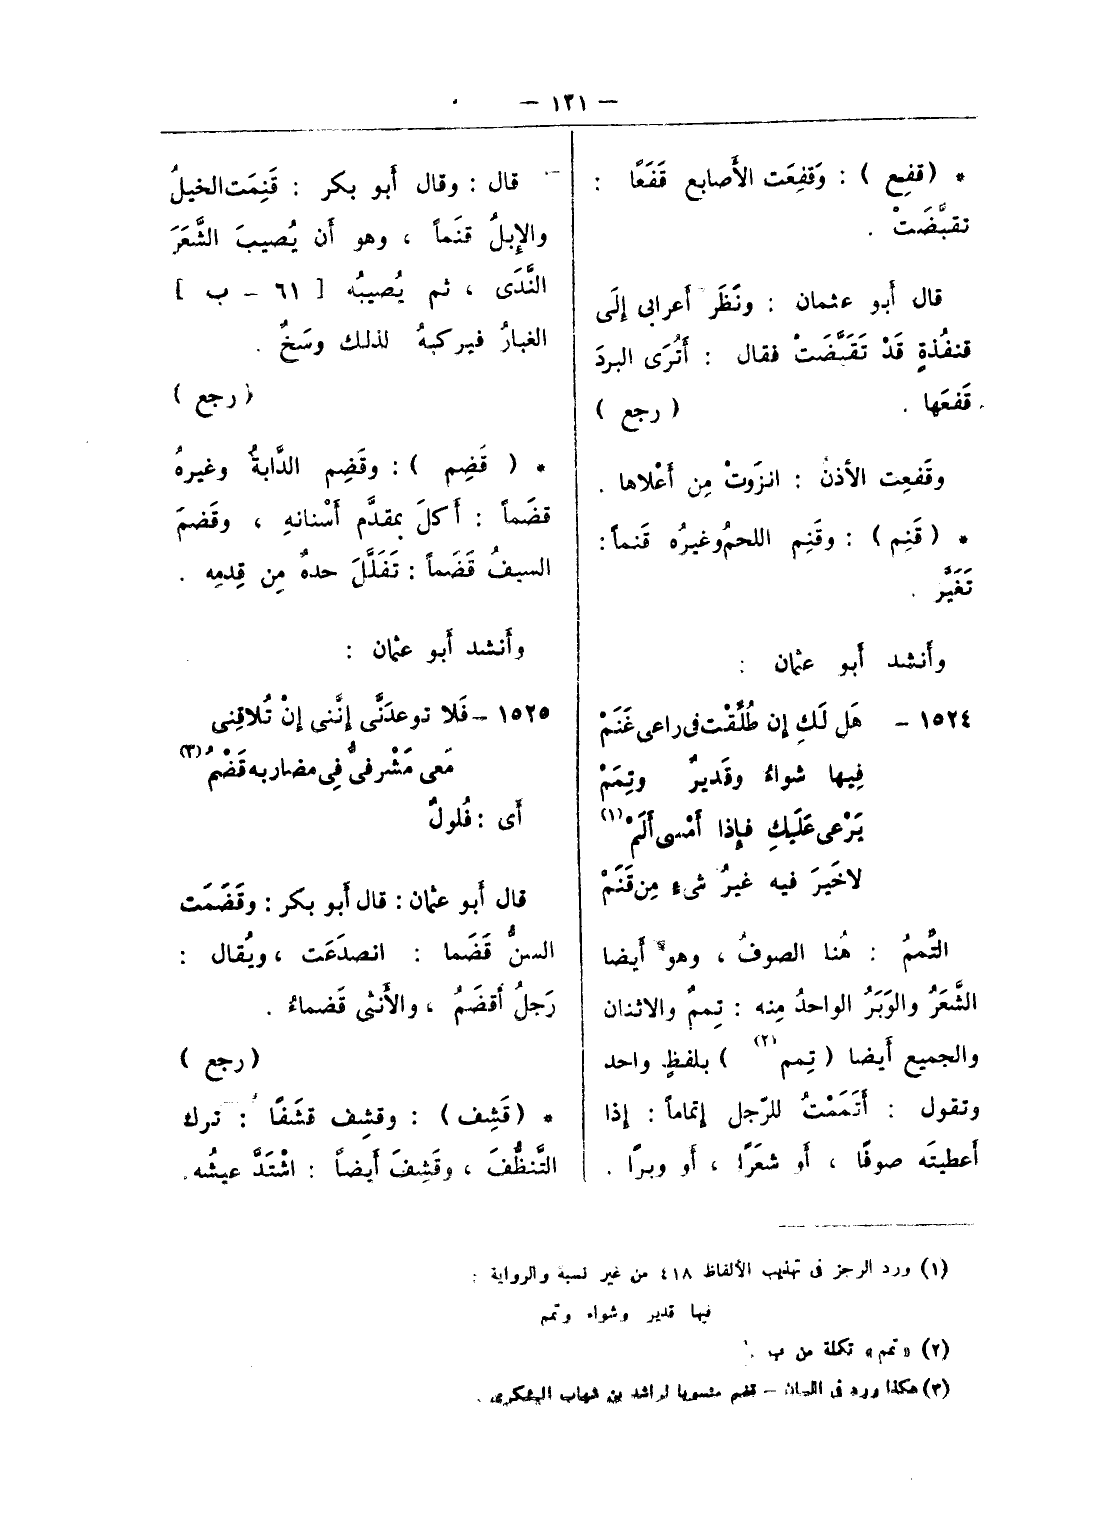 — ١٢١ —
* ( قفِع ) : وَقفِعَت الأَصابع قَفَعًا :
تقبَّضَتْ .
قال أَبو عثمان : ونَظَر أَعرابى إلَى
قنفُذةٍ قَدْ تَقَبَّضَتْ فقال : أَتُرَى البردَ
قَفعَها . ( رجع )
وقَفعِت الأذنُ : انزَوتْ مِن أَعْلاها .
* ( قَنِم ) : وقَنِم اللحمُ وغيرُه قَنماً :
تَغَيَّر .
وأَنشد أَبو عثمان :
١٥٢٤ – هَل لَكِ إن طُلِّقْت فى راعى غَنَمْ
فِيها شواءٌ وقَديرٌ وتِمَمْ
يَرْعى عَلَيكِ فإِذا أَمْسى أَلَمّْ (١)
لاخَيرَ فيه غيرُ شىءٍ مِن قَنَمْ
التِّممُ : هُنا الصوفُ ، وهو أَيضا
الشَّعَرُ والوَبَرُ الواحدُ مِنه : تِممٌ والاثنان
والجميع أَيضا ( تِمم (٢) ) بلفظٍ واحد
وتقول : أَتمَمْتُ للرّجل إتماماً : إذا
أَعطيتَه صوفًا ، أَو شعَرًا ، أَو وبرًا .
قال : وقال أَبو بكر : قَنِمَت الخيلُ
والإِبلُ قنَماً ، وهو أَن يُصيبَ الشَّعَرَ
النَّدَى ، ثم يُصيبُه [ ٦١ – ب ]
الغبارُ فيركبهُ لذلك وسَخٌ .
( رجع )
* ( قَضِم ) : وقَضِم الدَّابةُ وغيرهُ
قضَماً : أَكلَ بمقدَّم أَسْنانهِ ، وقَضمَ
السيفُ قَضَماً : تَفَلَّلَ حدهٌ مِن قِدمِه .
وأَنشد أَبو عثمان :
١٥٢٥ – فَلا توعدَنَّى إنَّنى إنْ تُلاقِنِى
مَعى مَشْرفىٌّ فِى مضاربه قَضْمُ (٣)
أَى : فُلولٌ
قال أَبو عثمان : قال أَبو بكر : وقَضَمَت
السنُّ قَضَما : انصدَعَت ، ويُقال :
رَجلُ أَقضَمُ ، والأُنثى قَضماءُ .
( رجع )
* ( قَشِف ) : وقشِف قشَفًا : ترك
التَّنظُّفَ ، وقَشِفَ أَيضاً : اشْتَدَّ عيشُه .
(١) ورد الرجز فى تهذيب الألفاظ ٤١٨ من غير نسبة والرواية :
فيها قدير وشواء وتمم
(٢) « تمم » تكملة من ب .
(٣) هكذا ورد فى اللسان – قضم منسوبا لراشد بن شهاب اليشكرى .